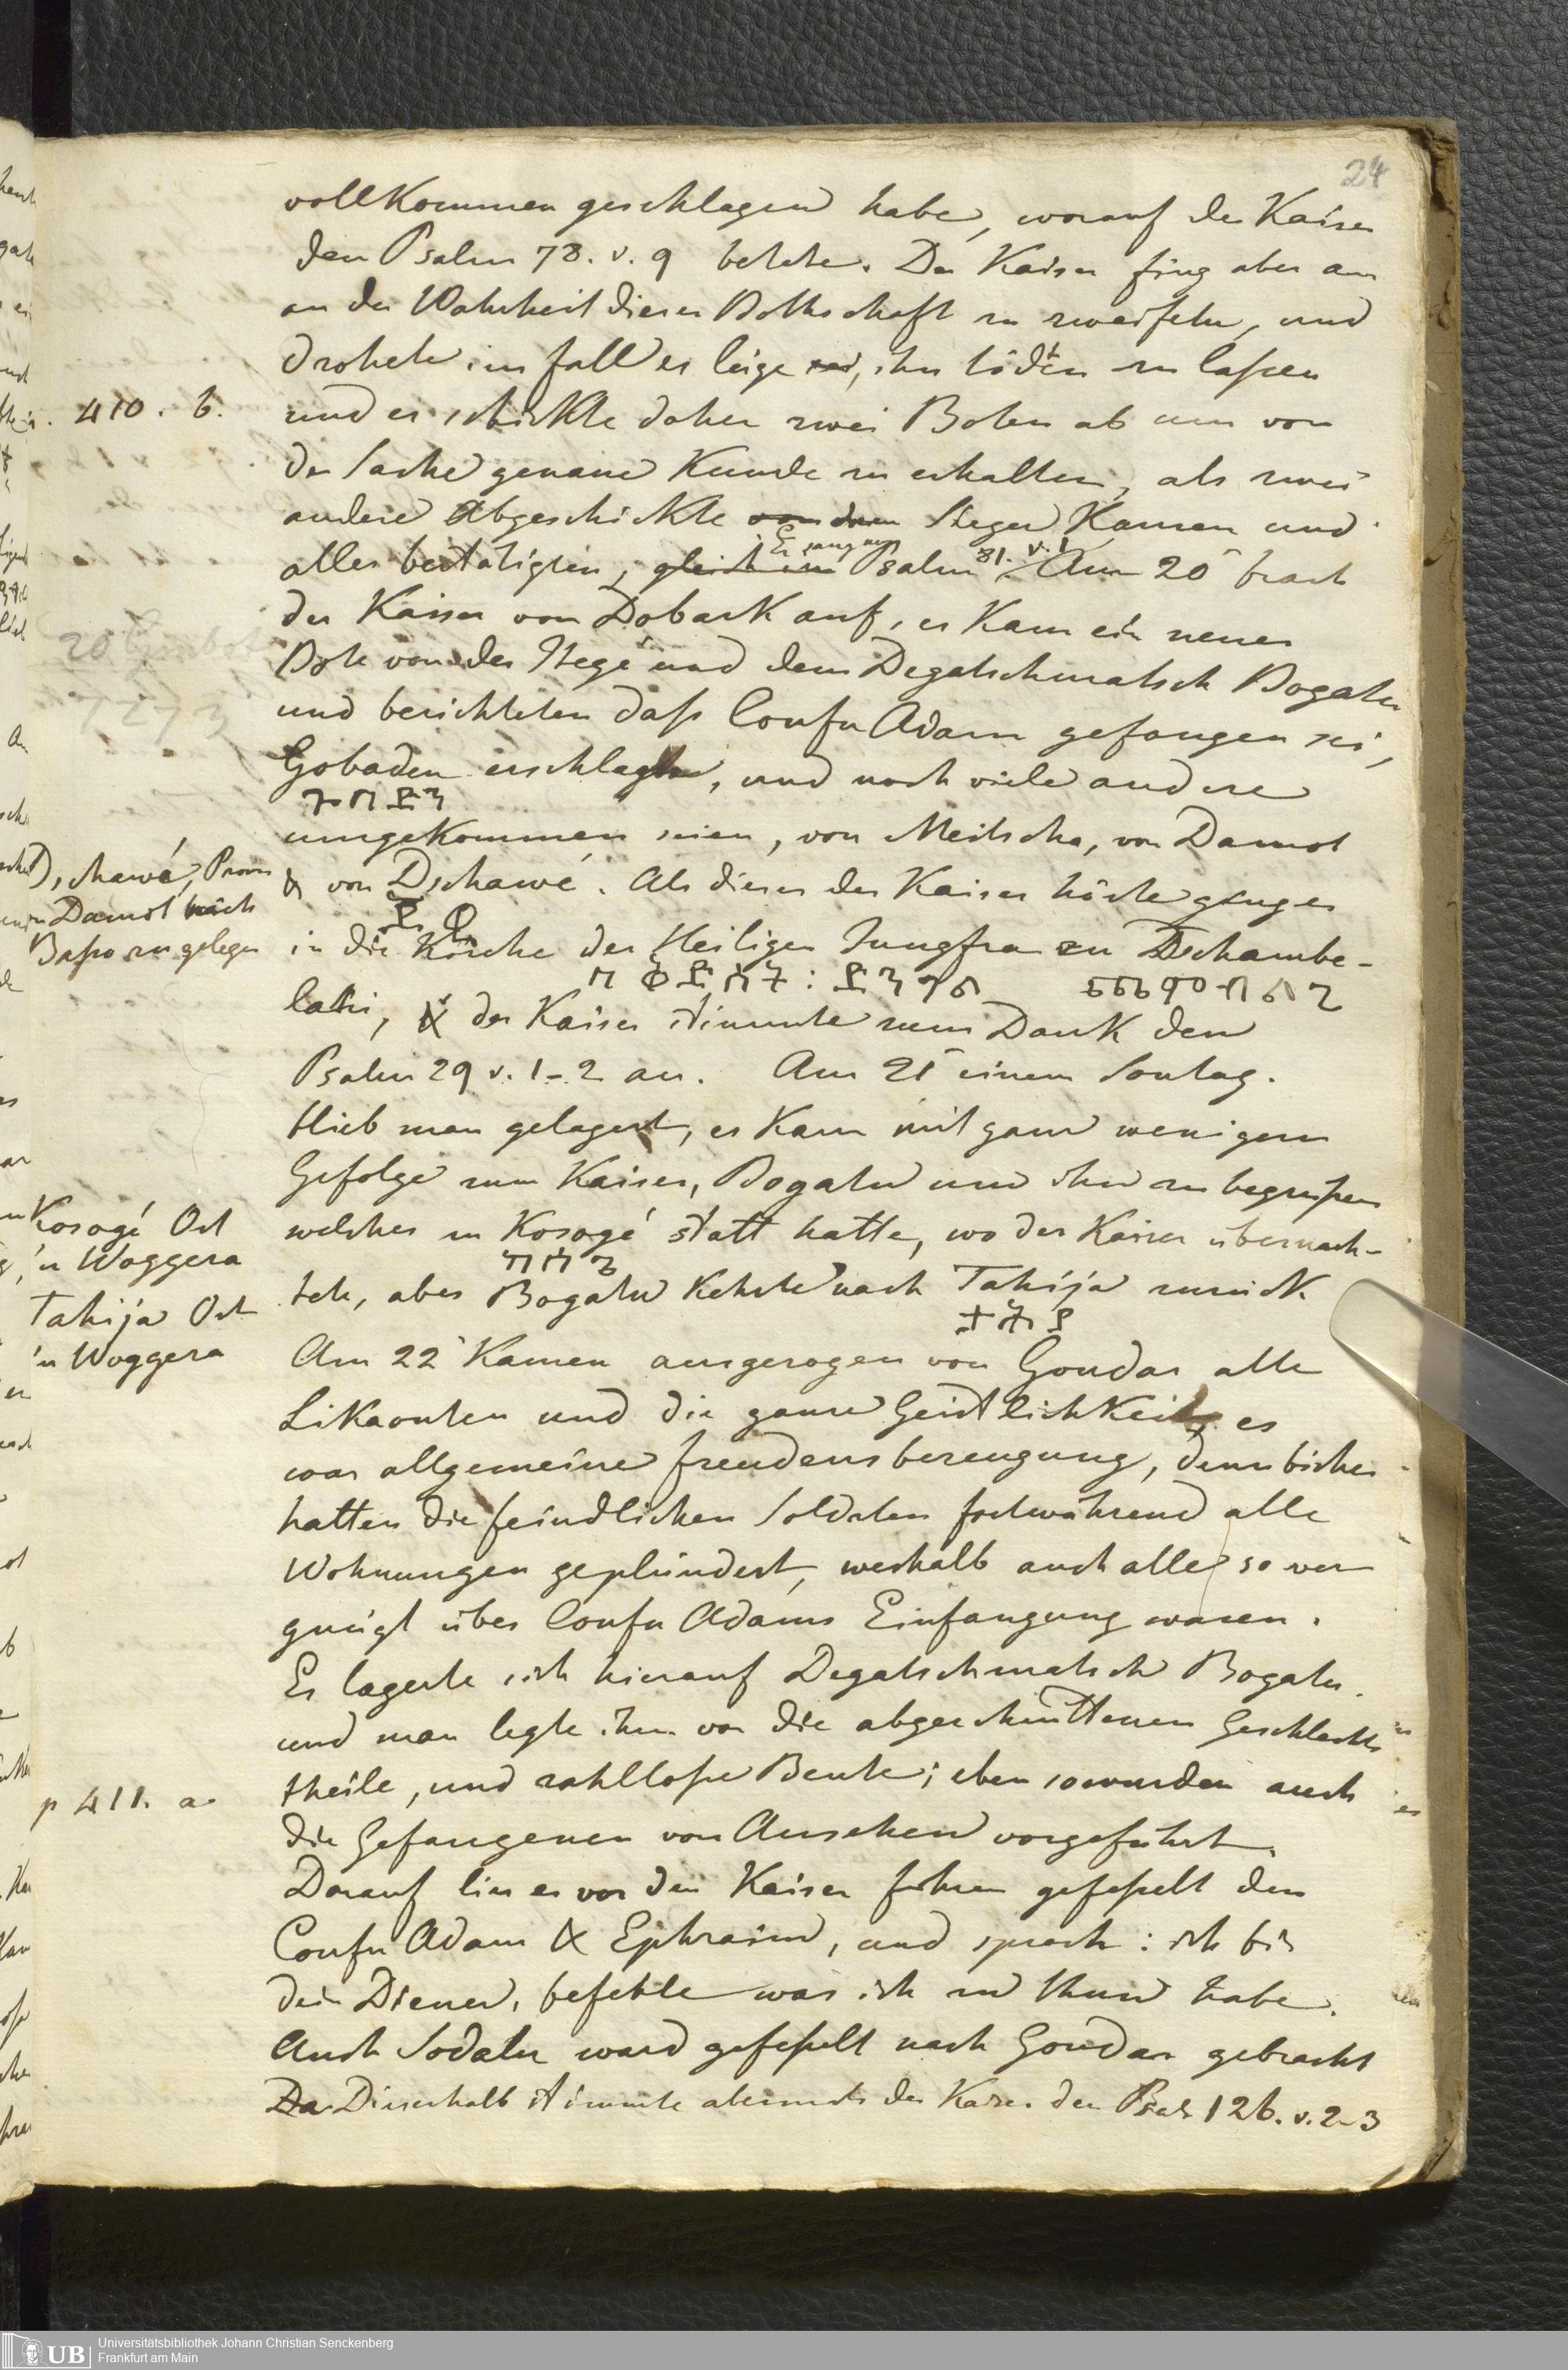 24
vollkommen geschlagen habe, worauf der Kaiser
den Psalm 78. v. 9 betete. Der Kaiser fing aber an
an der Wahrheit dieser Bothschaft zu zweifeln, und
drohete im fall er lüge, ihn tödten zu laßen
410. b.
und er schickte daher zwei Boten ab um von
der Sache genaue Kunde zu erhalten, als zwei
andere Abgeschickte Steger Kamen und
alles bestätigten, Er sang nun Psalm 81. v. 1 Am 20 brach
der Kaiser von Dobark auf, es Kam ein neuer
Bote von der Itegé und dem Degatschmatsch Bogatu
und berichteten daß Confu Adam gefangen sei,
Gobaden erschlagen, und noch viele andere
ጎበዴን
umgekommen seien, von Meitscha, von Damot
& von Dschawé. Als dieses der Kaiser hörte ging er
Dschawé, Prov.
in Damot nach
Baßo zu gelegen
ጄዊ
in die Kirche der Heiligen Jungfrau zu Dschambe-
በቅድስት : ድንግል
laki, & der Kaiser stimmte zum Dank den
Psalm 29 v. 1-2 an. Am 21 einem Sontag.
blieb man gelagert, es Kam mit ganz wenigem
Gefolge zum Kaiser, Bogatu um ihn zu begrüßen
welches in Kosogé statt hatte, wo der Kaiser übernach-
Kosogé Ort
in Woggera
ኮሶጌ
tete, aber Bogatu Kehrte nach Takija zurück.
Takija Ort
in Woggera
ታኪያ
Am 22 Kamen ausgezogen von Gondar alle
Likaonten und die ganze Geistlichkeit, es
war allgemeine freudensbezeugung, denn bisher
hatten die feindlichen Soldaten fortwährend alle
Wohnungen geplündert, weshalb auch alle so ver
gnügt über Confu Adams Einfangung waren.
Es lagerte sich hierauf Degatschmatsch Bogatu
und man legte ihm vor die abgeschnittenen Geschlechts
theile, und zahllose Beute; eben so wurden auch
p 411. a.
die Gefangenen von Ansehen vorgeführt.
Darauf lies er vor den Kaiser führen gefeßelt den
Confu Adam & Ephraim, und sprach: ich bin
dein Diener, befehle was ich zu thun habe.
Auch Sodalu ward gefeßelt nach Gondar gebracht
Da Dieserhalb stimmte abermals der Kaiser den Psalm 126. v. 2-3
UB
Universitätsbibliothek Johann Christian Senckenberg
Frankfurt am Main